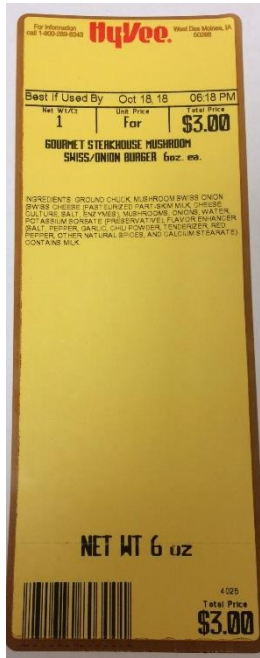 For Information
call 1-800-289-8343
HyVee.
West Des Moines, IA
50266
Best If Used By Oct 18, 18 06:18 PM
Net Wt/Ct Unit Price Total Price
1 For $3.00
GOURMET STEAKHOUSE MUSHROOM
SWISS/ONION BURGER 6oz. ea.
INGREDIENTS: GROUND CHUCK, MUSHROOM SWISS ONION
(SWISS CHEESE (PASTEURIZED PART-SKIM MILK, CHEESE
CULTURE, SALT, ENZYMES), MUSHROOMS, ONIONS, WATER,
POTASSIUM SORBATE (PRESERVATIVE), FLAVOR ENHANCER
(SALT, PEPPER, GARLIC, CHILI POWDER, TENDERIZER, RED
PEPPER, OTHER NATURAL SPICES, AND CALCIUM STEARATE)
CONTAINS MILK
NET WT 6 oz
4025
Total Price
$3.00